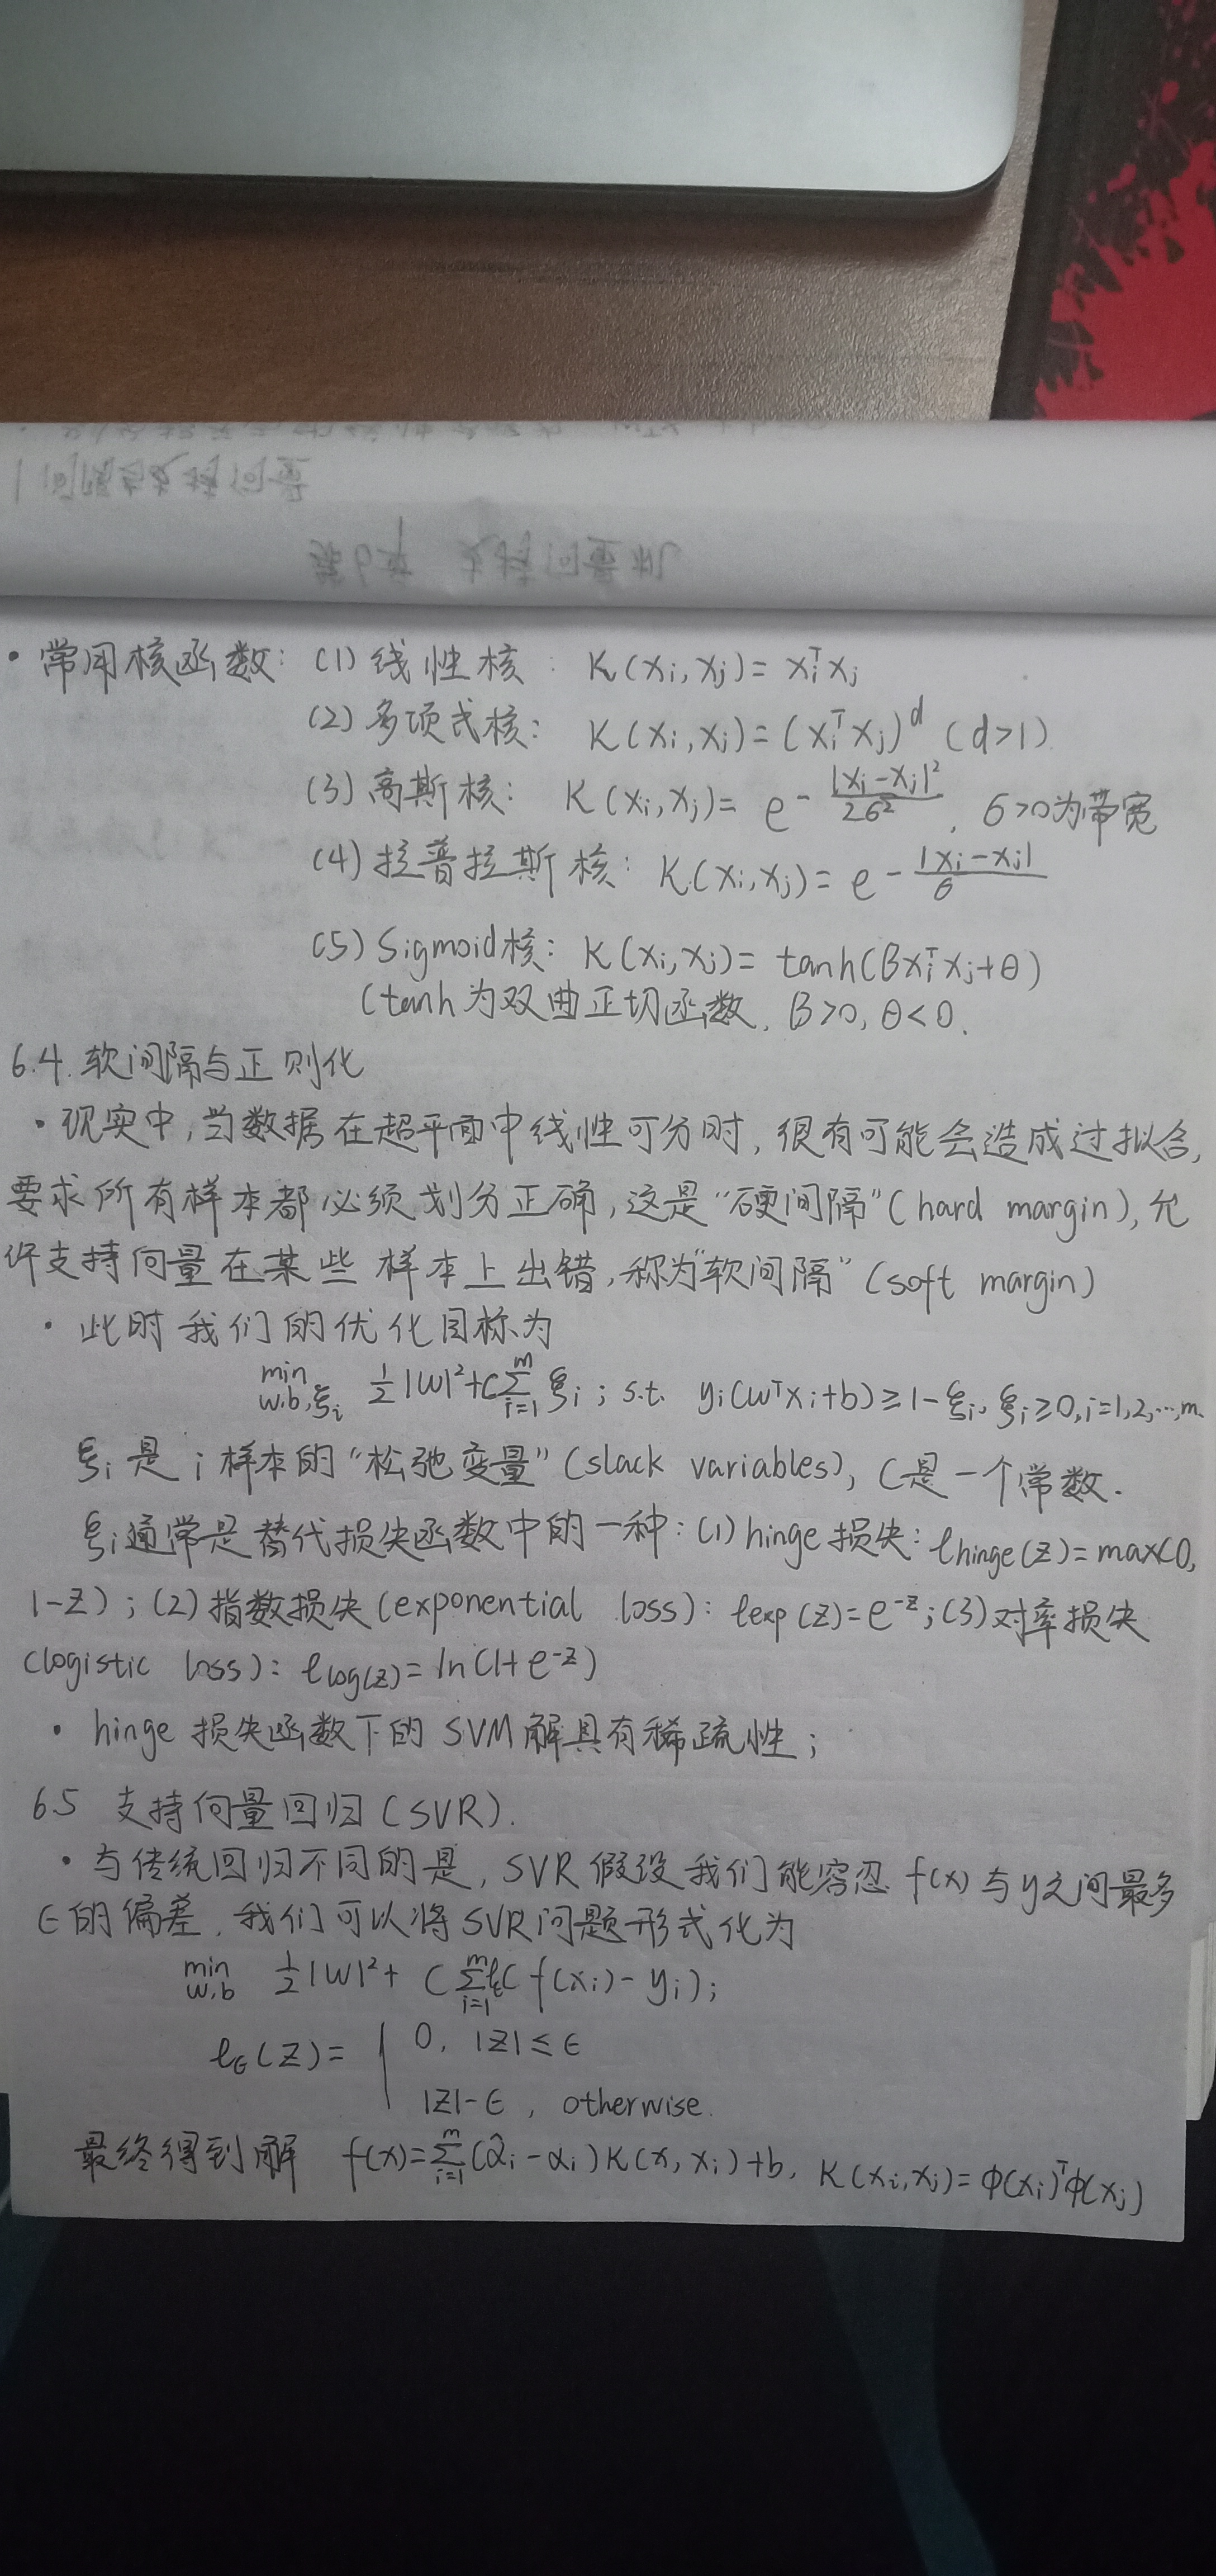 ·常用核函数: (1) 线性核: K(xi,xj)=xiᵀxj
(2) 多项式核: K(xi,xj)=(xiᵀxj)^d (d>1)
(3) 高斯核: K(xi,xj)= e^-|xi-xj|²/2σ², σ>0为带宽
(4) 拉普拉斯核: K(xi,xj)= e^-|xi-xj|/σ
(5) Sigmoid核: K(xi,xj)= tanh(βxiᵀxj+θ)
(tanh为双曲正切函数, β>0, θ<0.
6.4. 软间隔与正则化
·现实中,当数据在超平面中线性可分时,很有可能会造成过拟合,
要求所有样本都必须划分正确,这是“硬间隔”(hard margin),允
许支持向量在某些样本上出错,称为“软间隔”(soft margin)
·此时我们的优化目标为
min w,b,ξi ½|w|²+C∑(i=1→m) ξi ; s.t. yi(wᵀxi+b)≥1-ξi, ξi≥0, i=1,2,...,m.
ξi是i样本的“松弛变量”(slack variables), C是一个常数.
ξi通常是替代损失函数中的一种: (1) hinge损失: ℓhinge(z)=max(0,
1-z) ; (2) 指数损失(exponential loss): ℓexp(z)=e^-z; (3) 对率损失
(logistic loss): ℓlog(z)=ln(1+e^-z)
·hinge损失函数下的SVM解具有稀疏性;
6.5 支持向量回归(SVR).
·与传统回归不同的是, SVR假设我们能容忍f(x)与y之间最多
ϵ的偏差,我们可以将SVR问题形式化为
min w,b ½|w|²+ C∑(i=1→m) ℓϵ( f(xi)-yi);
ℓϵ(z)= { 0, |z|≤ϵ
|z|-ϵ, otherwise.
最终得到解 f(x)=∑(i=1→m) (α̂i-αi)K(x,xi)+b, K(xi,xj)=φ(xi)ᵀφ(xj)